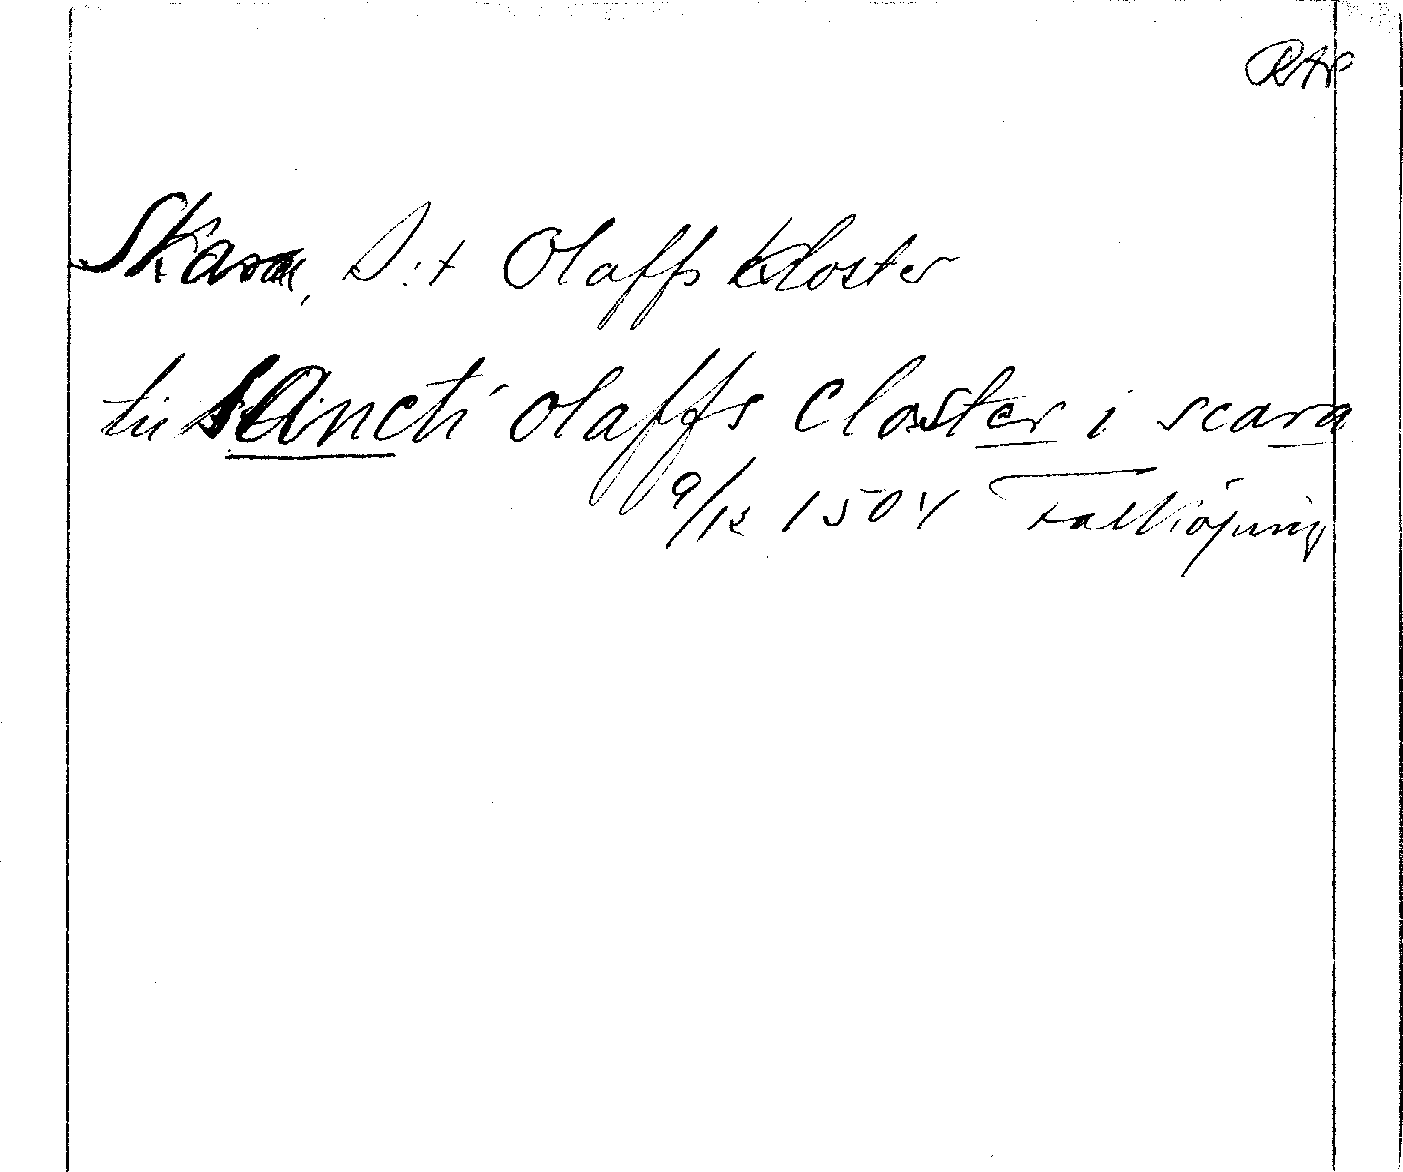 RAP
Skara, S:t Olaffs kloster
til sancti olaffs closter i scara
9/12 1504 Falköping